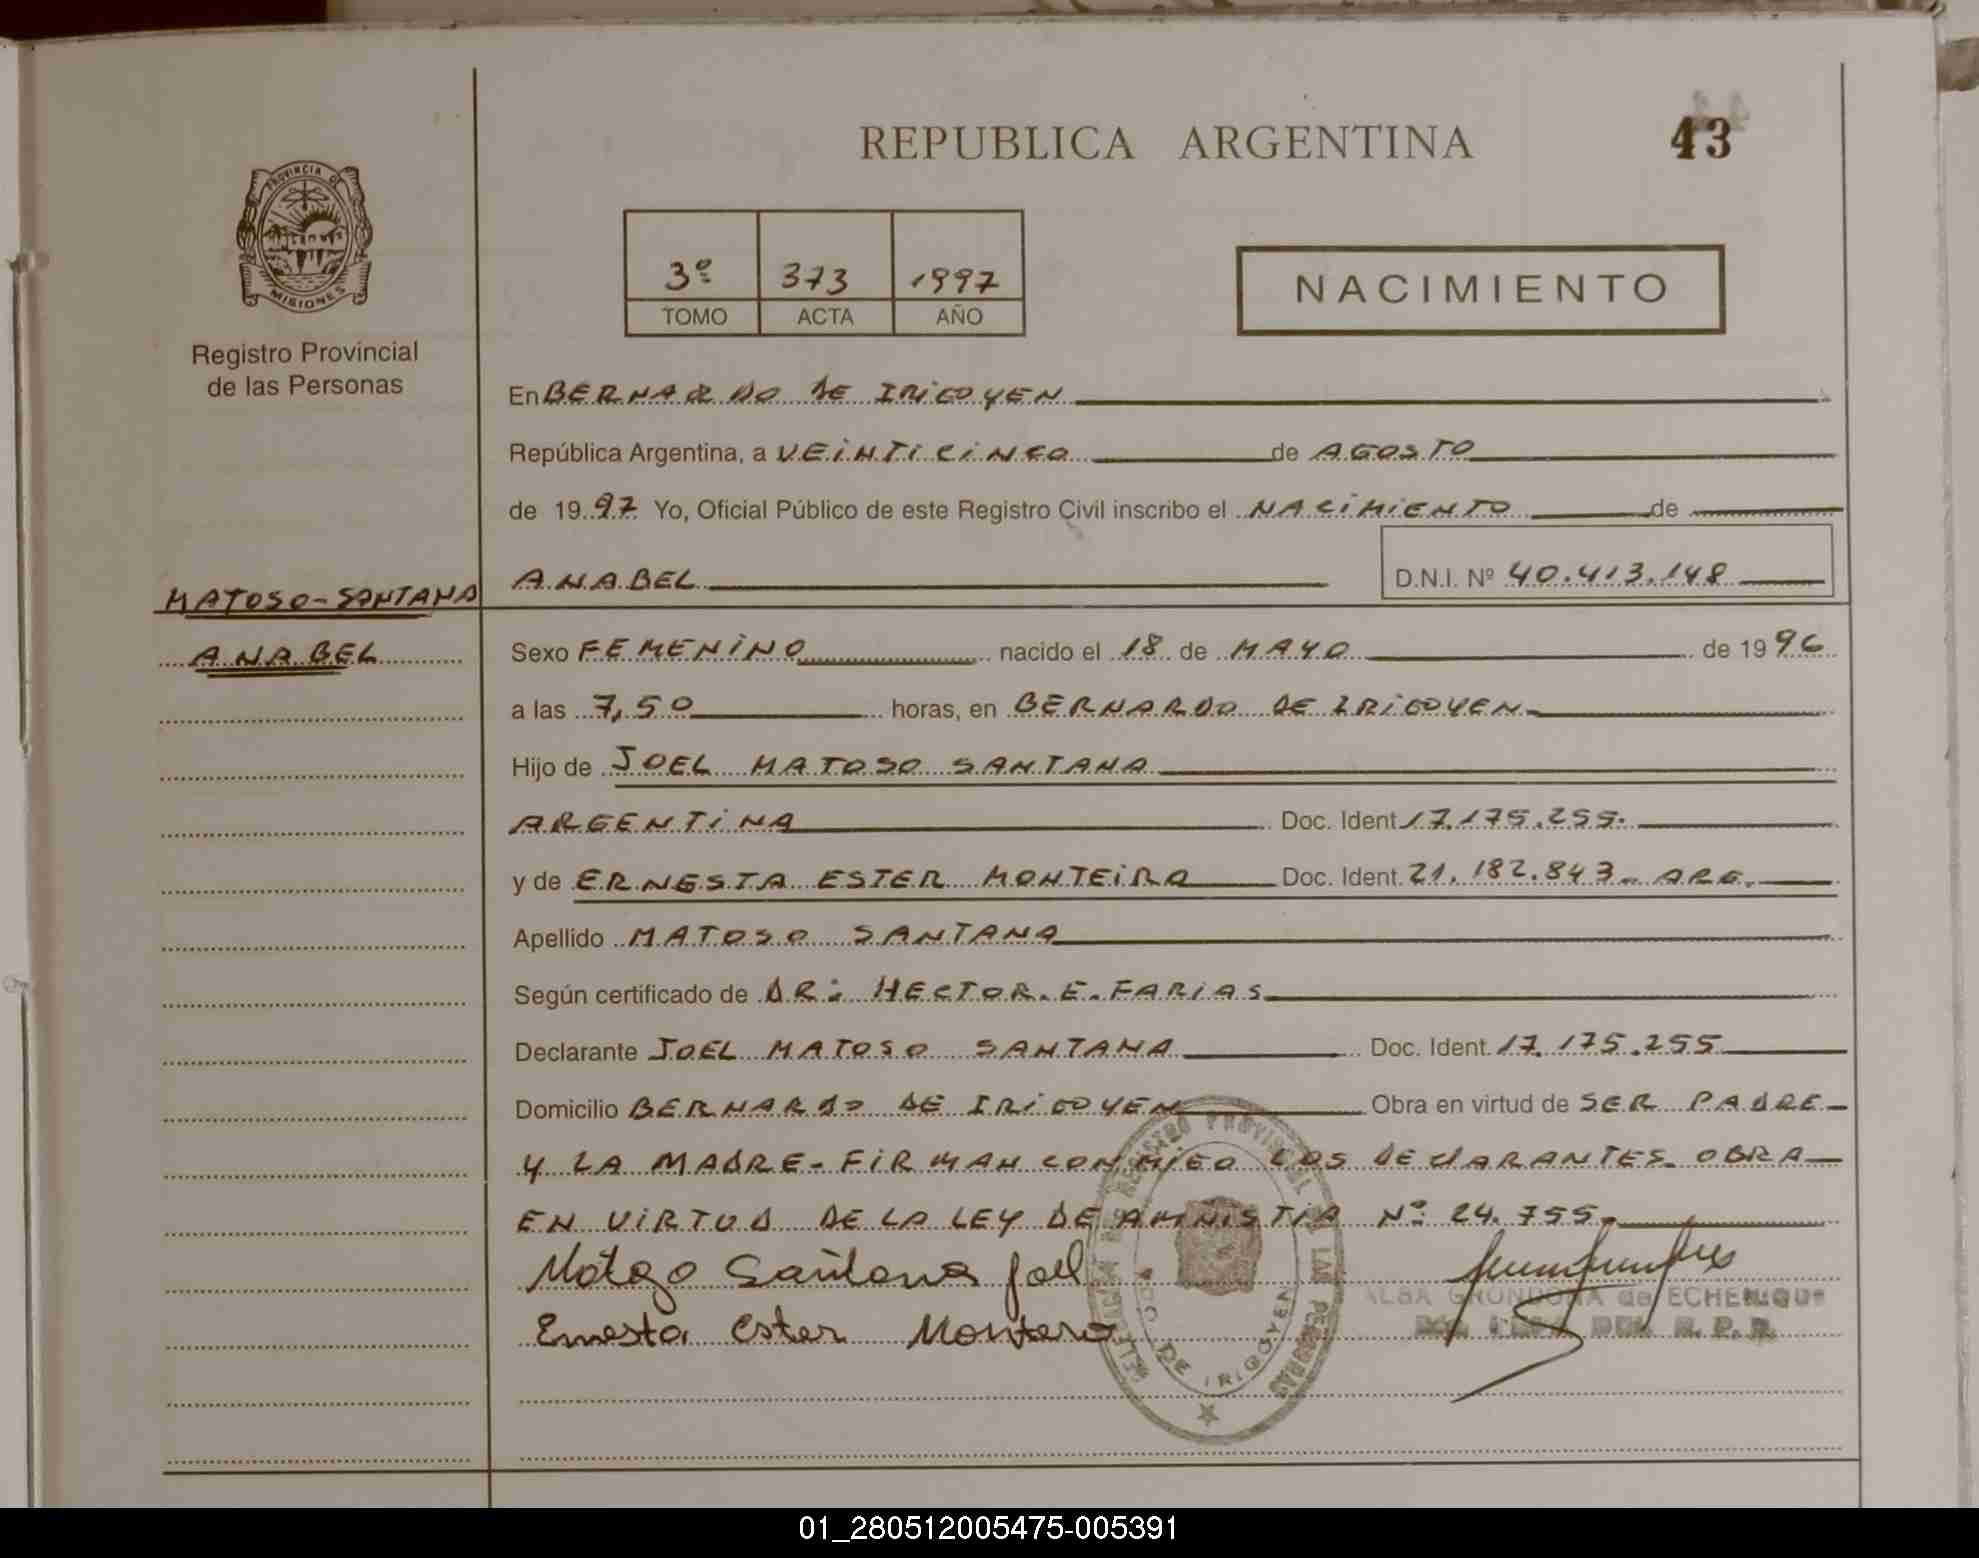 REPUBLICA ARGENTINA
43
PROVINCIA DE
MISIONES
Registro Provincial
de las Personas
3º 373 1997
TOMO ACTA AÑO
NACIMIENTO
En BERNARDO DE IRIGOYEN
República Argentina, a VEINTICINCO de AGOSTO
de 1997 Yo, Oficial Público de este Registro Civil inscribo el NACIMIENTO de
ANABEL D.N.I. Nº 40.413.148
MATOSO-SANTANA
ANABEL
Sexo FEMENINO nacido el 18 de MAYO de 1996
a las 7,50 horas, en BERNARDO DE IRIGOYEN
Hijo de JOEL MATOSO SANTANA
ARGENTINA Doc. Ident 17.175.255.
y de ERNESTA ESTER MONTEIRA Doc. Ident. 21.182.843- ARG.
Apellido MATOSO SANTANA
Según certificado de DR: HECTOR.E.FARIAS
Declarante JOEL MATOSO SANTANA Doc. Ident. 17.175.255
Domicilio BERNARDO DE IRIGOYEN Obra en virtud de SER PADRE-
Y LA MADRE- FIRMAN CONMIGO LOS DECLARANTES OBRA
EN VIRTUD DE LA LEY DE AMNISTIA Nº 24.755.
Matozo Santana Joel
Ernesta Ester Montera
REGISTRO PROVINCIAL DE LAS PERSONAS
DO DE IRIGOYEN
ALBA GRONDONA de ECHENIQUE
R. P. P.
01_280512005475-005391